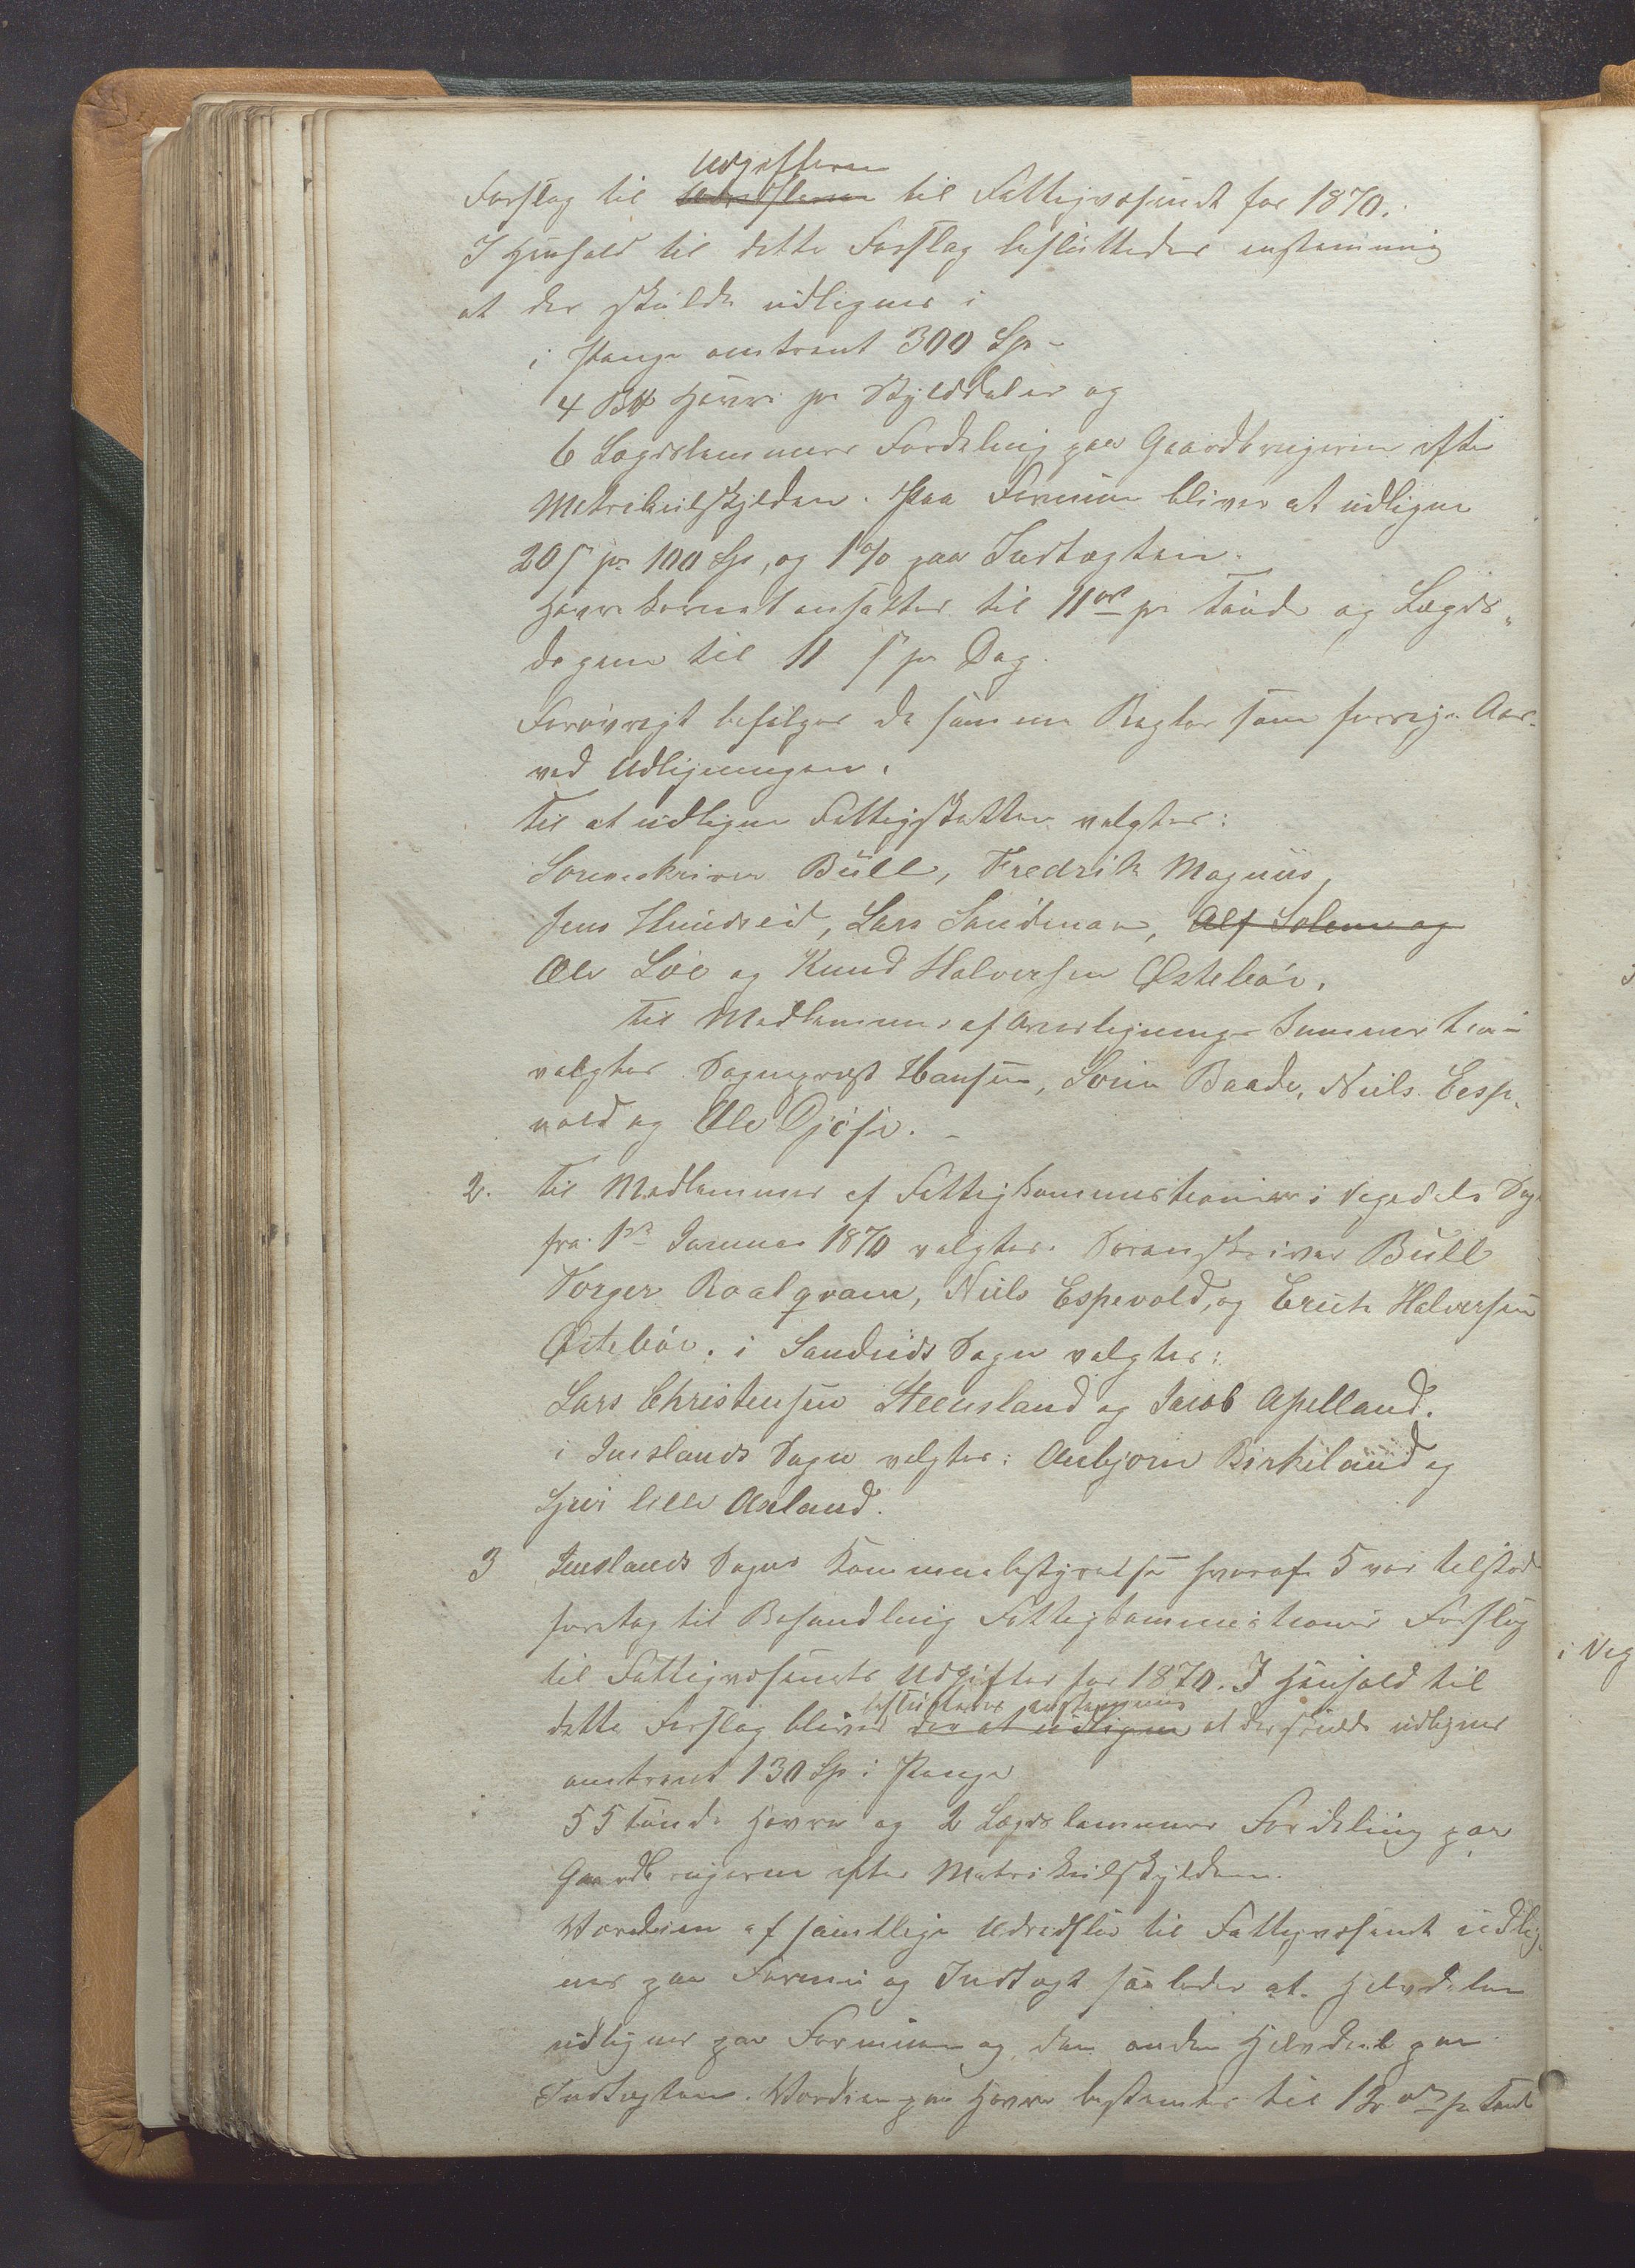 Udgifterne
Forslag til Udredslerne til Fattigvæsenet for 1870.
I Henhold til dette Forslag besluttedes enstemmig
at der skulde udlignes i
i Penge omtrent 300 Sp -
4 Havre pr Skylddaler og
6 Lægdslemmers Fordeling paa Gaardbrugerne efter
Matrikulskylden. Paa Formuen bliver at udligne
20 s pr 100 Sp, og 1% paa Indtægten.
Havrekornet ansættes til 11 ort pr Tønde og Lægds„
dagene til 11 s pr Dag.
Forøvrigt befølges de samme Regler som forrige Aar
ved Udligningen.
Til at udligne Fattigskatten valgtes:
Sorenskriver Bull, Fredrik Magnus,
Jens Hundseid, Lars Sandmoen, Alf Solem og
Ole Løe og Knud Halversen Østebøe.
Til Medlemmer af Overligningskommission
valgtes Sogneprest Hansen, Søren Baade, Niels Espe„
vold og Ole Djøse. -
2. Til Medlemmer af Fattigkommissionen i Vegedals Sogn
fra 1ste Januar 1870 valgtes Sorenskriver Bull
Torger Raalqvam, Niels Espevold, og Erick Halversen
Østebøe. i Sandeids Sogn valgtes:
Lars Christensen Steensland og Jacob Apelland.
i Imslands Sogn valgtes: Anbjørn Birkeland og
Sjur lille Aaland.
3 Imslands Sogns Kommunebestyrelse hvoraf 5 var tilstede
foretog til Behandling Fattigkommissionens Forslag
til Fattigvæsenets Udgifter for 1870. I Henhold til
besluttedes enstemmig
dette Forslag bliver der at udligne at der skulde udlignes
omtrent 130 Sp i Penge
55 Tønde Havre og 2 Lægdslemmers Fordeling paa
Gaardbrugerne efter Matrikulskylden.
Værdien af samtlige Udredsler til Fattigvæsenet udlig„
nes paa Formue og Indtægt saaledes at Halvdelen
udlignes paa Formuen og den anden Halvdel paa
Indtægten. Værdien paa Havre bestemtes til 12 ort pr Tønde
i Veg